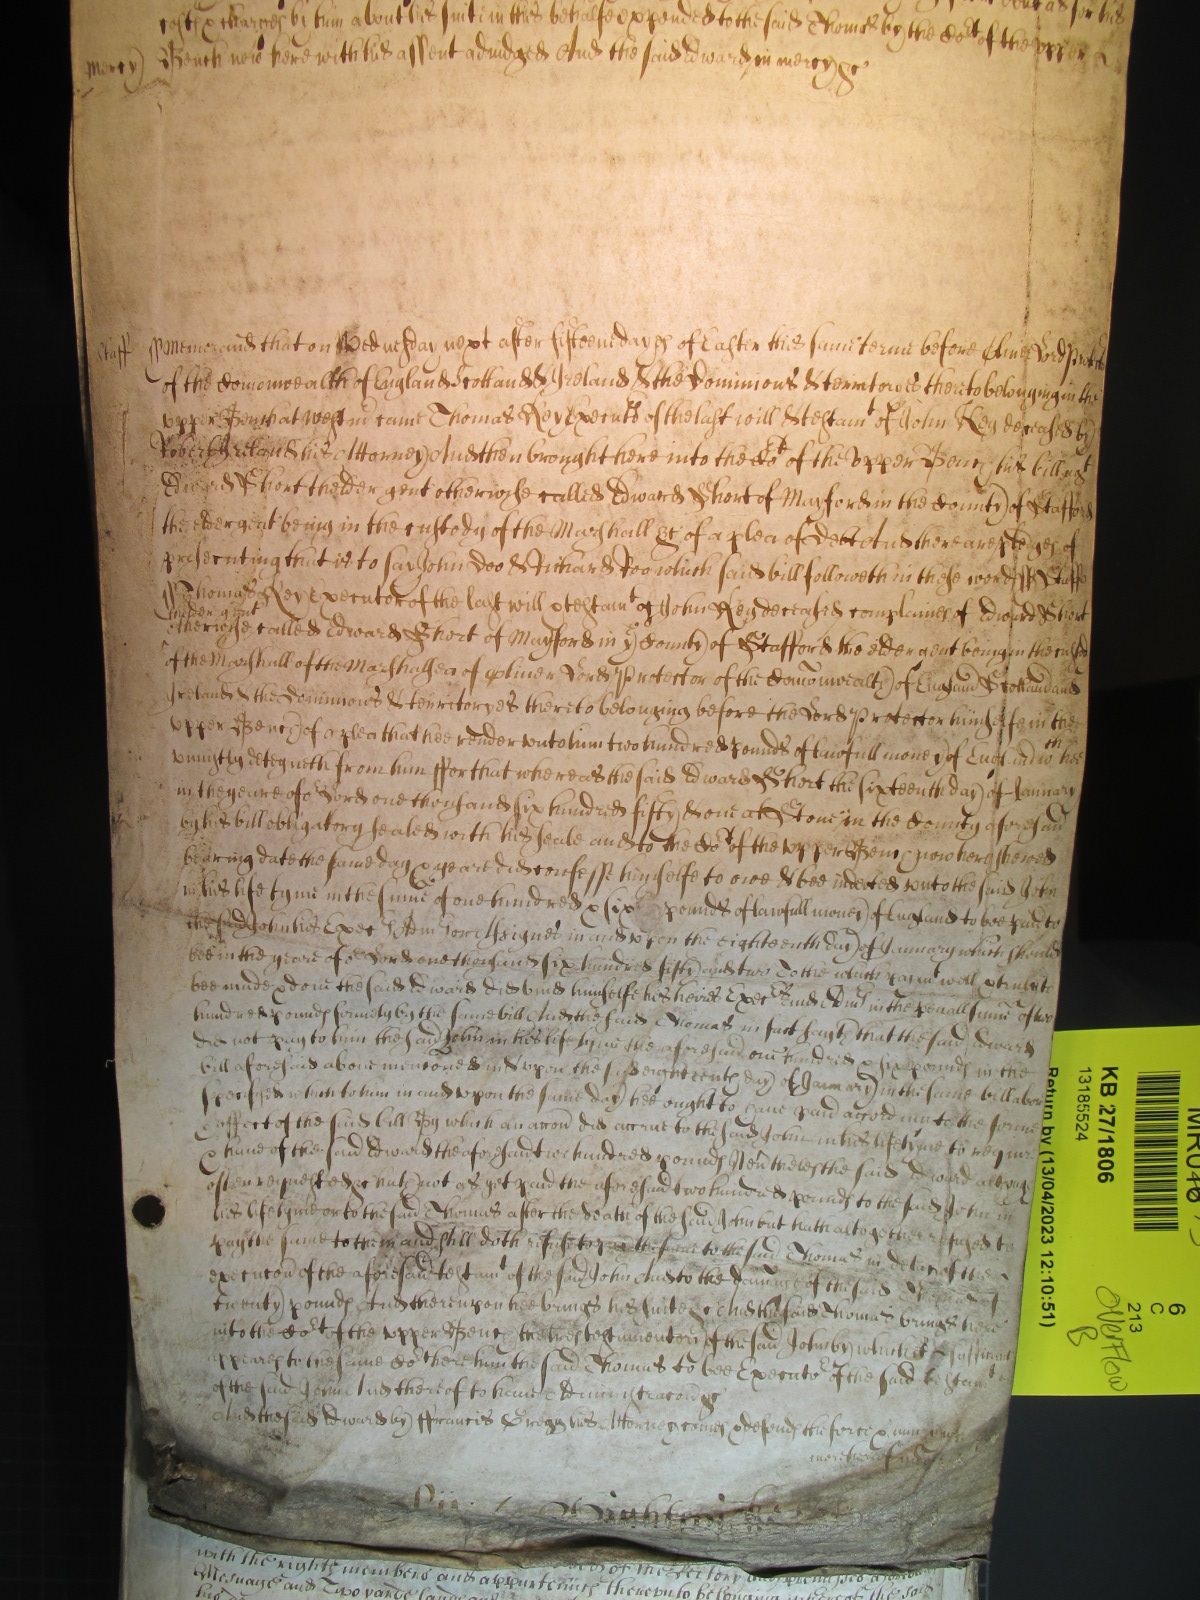 costs & charges by him about his suite in this behalfe expended to the said Thomas by the Cort of the upper
mercy Bench now here with his assent adiudged And the said Edward in mercy &c
Staff Memorand that on Wednesday next after fifteene dayes of Easter this same terme before Oliver Lord Protector
of the Comonwealth of England Scotland & Ireland & the Dominions & territories thereto belonging in the
upper Bench at Westm came Thomas Key Executor of the last will & testamt of John Key deceased by
Robert his Attorney And then brought here into the Cort of the upper Bench his bill agt
Edward Short thelder gent otherwise called Edward Short of Mayford in the County of Stafford
the elder gent being in the custody of the Marshall &c of a plea of Debt And there are pledges of
prosecuting that is to say John Doo & Richard Roo which said bill followeth in these words ss Staff
Thomas Key executor of the last will & testamt of John Key deceased complaines of Edward Short
thelder gent
otherwise called Edward Short of Mayford in ye County of Stafford the elder gent being in the custody
of the Marshall of the Marshalsea of Oliver Lord Protector of the Comonwealth of England Scotland and
Ireland & the Dominions & territoryes thereto belonging before the Lord Protector himselfe in the
upper Bench of a plea that hee render unto him two hundred pounds of lawfull money of England wch hee
uniustly deteyneth from him ffor that whereas the said Edward Short the sixteenth day of January
in the yeare of or Lord one thousand six hundred fifty & one at Stone in the County aforesaid
by his bill obligatory sealed with his seale and to the Cort of the upper Bench now here shewed
bearing date the same day & yeare did confesse himselfe to owe & bee indebted unto the said John
in his life tyme in the summe of one hundred & six pounds of lawfull money of England to bee paid to
the said John his Execrs Admrs or Assignes in and upon the eighteenth day of January which should
bee in the yeare of or Lord one thousand six hundred fifty and two To the which paymt well & truly to
bee made & done the said Edward did bind himselfe his heires Execrs and Admrs in the penall summe of two
hundred pounds firmely by the same bill And the said Thomas in fact sayth that the said Edward
did not pay to him the said John in his life tyme the aforesaid one hundred & six pounds in the
bill aforesaid above mencioned in & upon the said eighteenth day of January in the same bill above
specifyed which to him in and upon the same day hee ought to have paid according to the forme
& effect of the said bill By which an accon did accrue to the said John in his life tyme to require
& have of the said Edward the aforesaid two hundred pounds Neverthelesse the said Edward although
often requested &c hath not as yet paid the aforesaid two hundred pounds to the said John in
his life tyme or to the said Thomas after the death of the said John but hath altogether refused to
pay the same to them and still doth refuse to pay the same to the said Thomas in delay of the
execucon of the aforesaid testamt of the said John And to the damage of the said Thomas of
twenty pounds And thereupon hee brings his suite &c And the said Thomas brings here
into the Cort of the upper Bench the lres testamentory of the said John by which it sufficiently
appeares to the same Cort here him the said Thomas to bee Executor of the said testamt
of the said John And thereof to have Administracon &c
And the said Edward by ffrancis Gregg his Attorney comes & defends the force & iniury when
with the rights members and appurtenncs thereunto belonging
Mesuage and Two yards land
MR046
6
C
213
KB 27/1806
13185524
Return by (13/04/2023 12:10:51)
Overflow
B